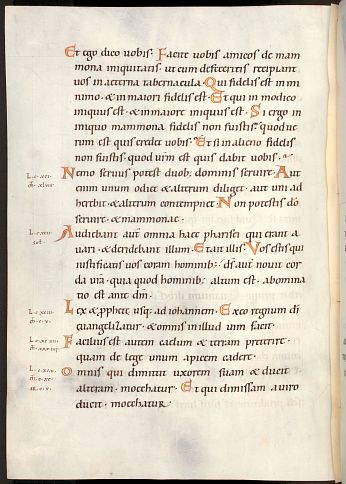 Et ego dico uobis. Facite uobis amicos de mam
mona iniquitatis. ut cum defeceritis recipiant
uos in aeterna tabernacula. Qui fidelis est in mi
nimo. & in maiori fidelis est. Et qui in modico
iniquus est. & in maiore iniquus est. Si ergo in
iniquo mammona fidelis non fuistis. quod ue
rum est quis credet uobis. Et si in alieno fidelis
non fuistis. quod urm est quis dabit uobis.
Nemo seruus potest duob; dominis seruire. Aut
enim unum odiet & alterum diliget. aut uni ad
herebit & alterum contempnet. Non potestis do
seruire. & mammonae.
Audiebant aute omnia haec pharisei qui erant a
uari. & deridebant illum. Et ait illis. Vos estis qui
iustificatis uos coram hominib;. ds aut nouit cor
da ura. quia quod hominib; altum est. abomina
tio est ante dm.
Lex & pphete usq; ad iohannem. Ex eo regnum di
euangelizatur. & omnis in illud uim facit.
Facilius est autem caelum & terram preterire.
quam de lege unum apicem cadere.
Omnis qui dimittit uxorem suam & ducit
alteram. moechatur. Et qui dimissam a uiro
ducit. moechatur.